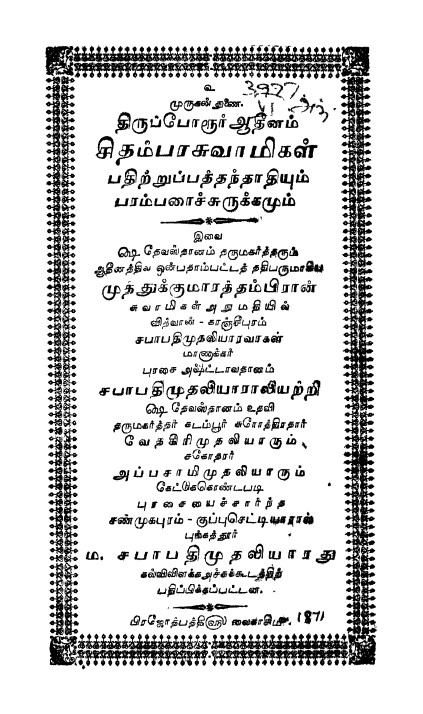 உ
3927
முருகன் துணை.
திருப்போரூர் ஆதீனம்
சிதம்பரசுவாமிகள்
பதிற்றுப்பத்தந்தாதியும்
பரம்பரைச்சுருக்கமும்
இவை
௸ தேவஸ்தானம் தருமகர்த்தரும்
ஆதீனத்தில் ஒன்பதாம்பட்டத் ததிபருமாகிய
முத்துக்குமாரத்தம்பிரான்
சுவாமிகள் அநுமதியில்
வித்வான் - காஞ்சீபுரம்
சபாபதிமுதலியாரவர்கள்
மாணாக்கர்
புரசை அஷ்ட்டாவதானம்
சபாபதிமுதலியாராலியற்றி
௸ தேவஸ்தானம் உதவி
தருமகர்த்தர் கடம்பூர் சுரோத்திரதார்
வேதகிரிமுதலியாரும்
சகோதரர்
அப்பசாமிமுதலியாரும்
கேட்டுக்கொண்டபடி
புரசையைச்சார்ந்த
சண்முகபுரம் - குப்புசெட்டியாரால்
புங்கத்தூர்
ம. சபாபதிமுதலியாரது
கல்விவிளக்கஅச்சுக்கூடத்திற்
பதிப்பிக்கப்பட்டன.
பிரஜோத்பத்தி வைகாசி 1871